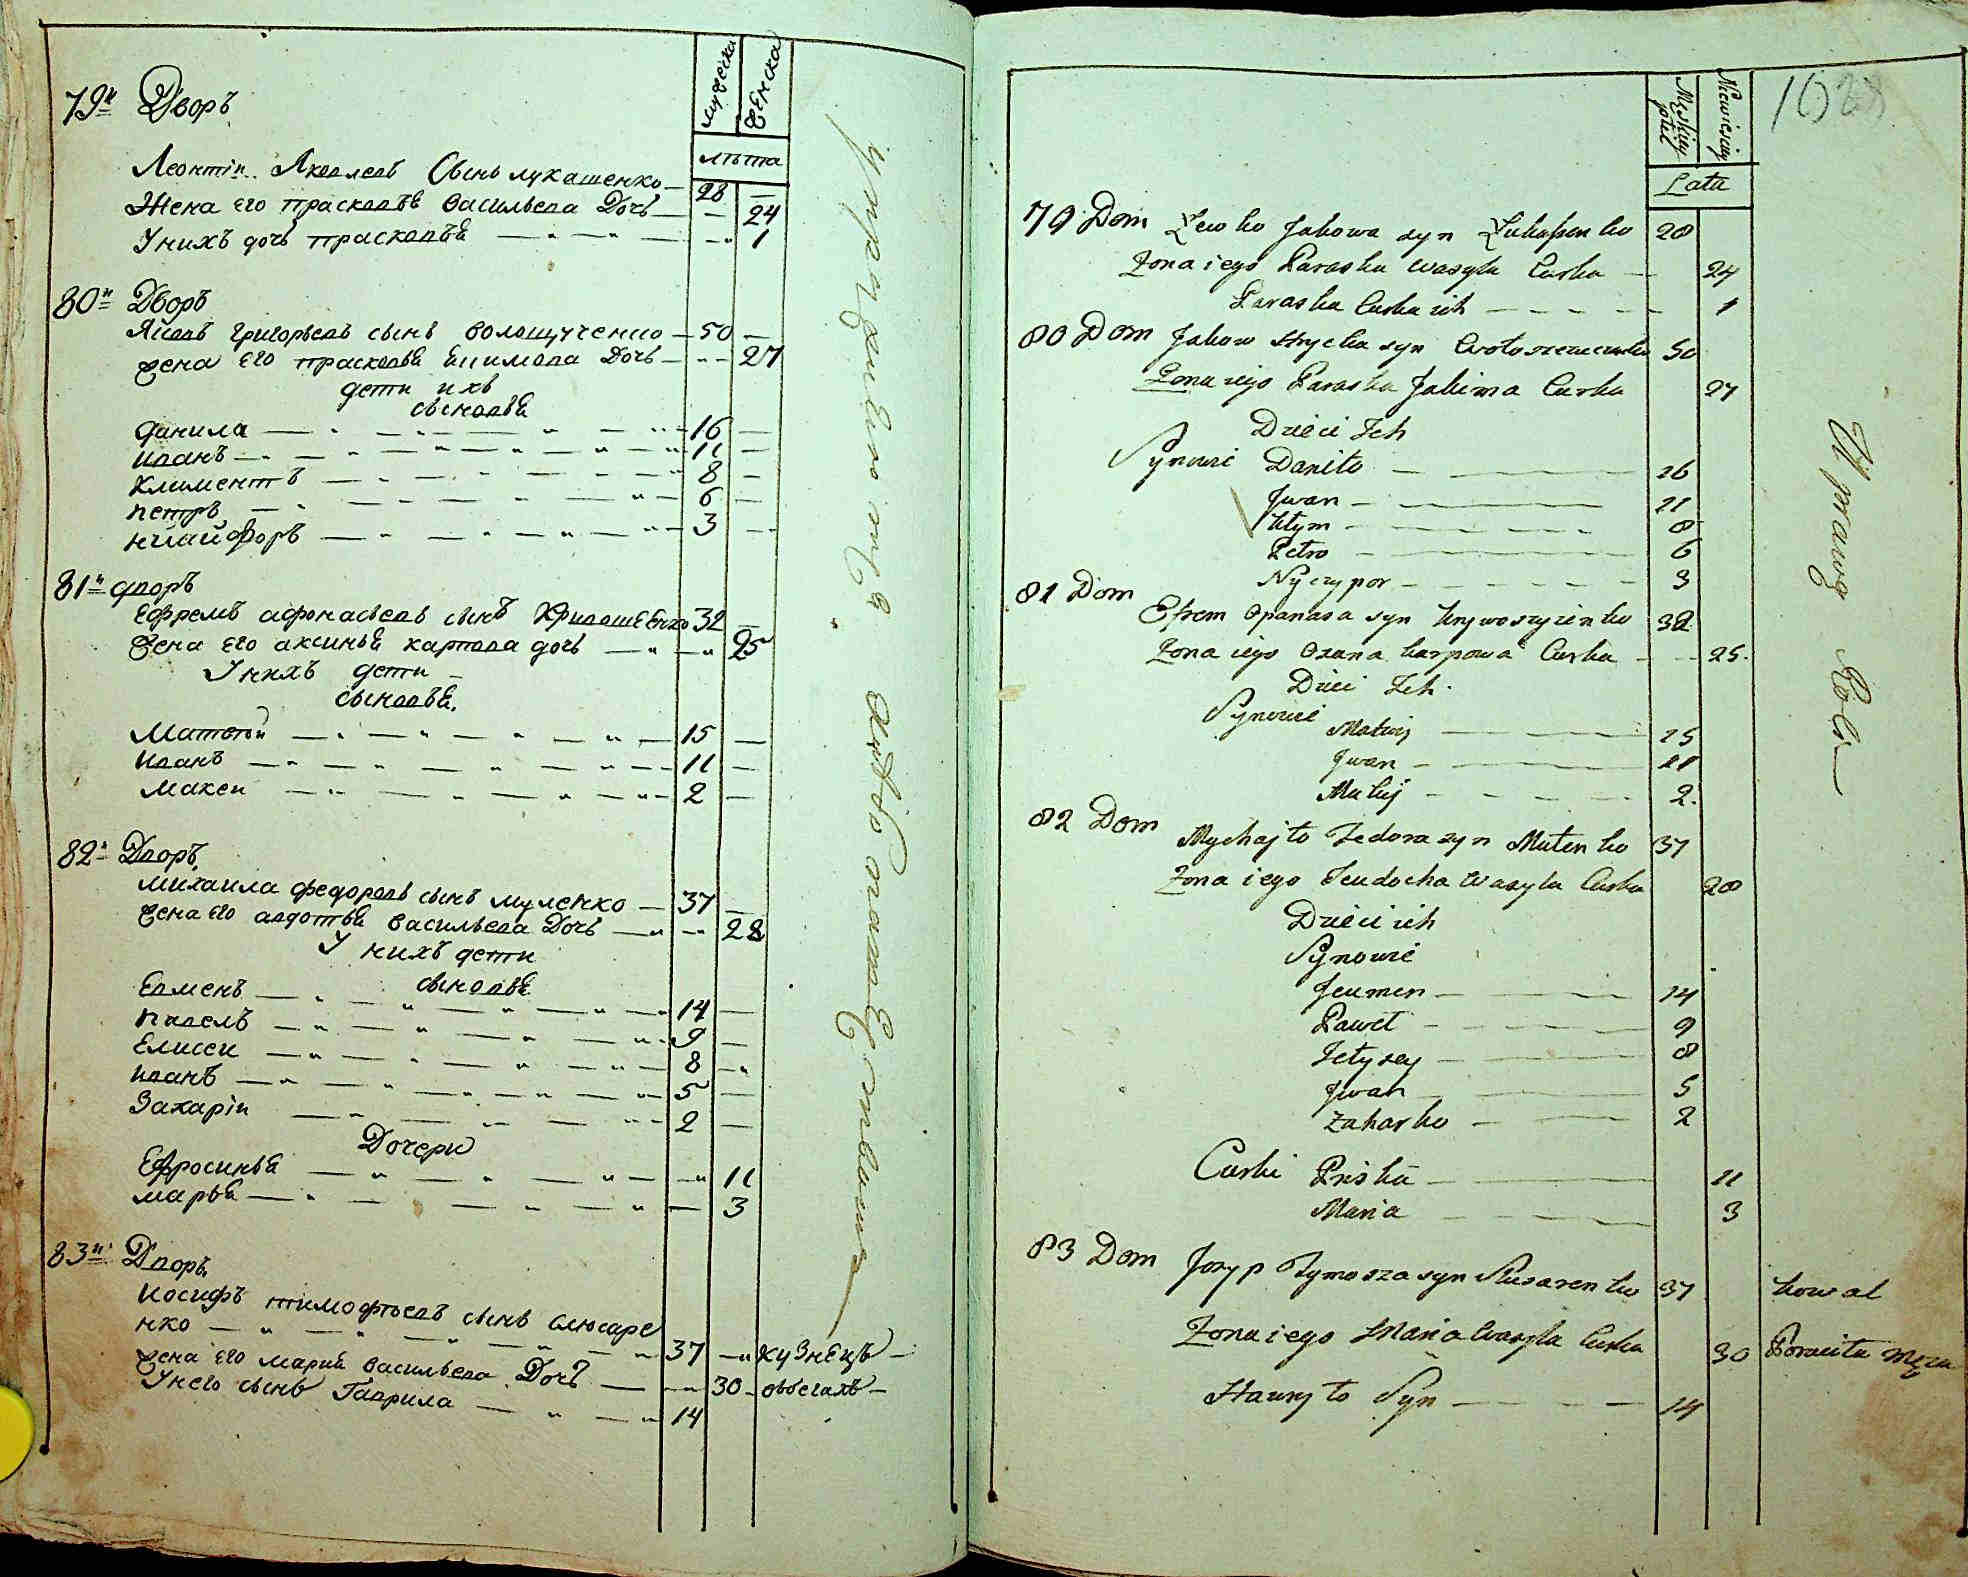 мужеска
женска
лѣта
79й Дворъ
Леонтiи Яковлевъ Сынъ лукашенко 28
Жена его прасковья васильева Дочь 24
У нихъ дочь прасковья 1
80й Дворъ
Яковъ григорьевъ сынъ волощученко 50
жена его прасковья екимова Дочь 27
дети ихъ
сыновья
данила 16
иванъ 11
климентъ 8
петръ 6
никифоръ 3
81й дворъ
Ефремъ афонасьевъ сынъ кривошеенко 32
жена его аксинья карпова дочь 25
У нихъ дети
сыновья
Матвѣй 15
иванъ 11
макеи 2
82й Дворъ
михаила федоровъ сынъ муленко 37
жена его авдотья васильева Дочь 28
У нихъ дети
сыновья
Евменъ 14
павелъ 9
Елисеи 8
иванъ 5
Захарiи 2
Дочери
Ефросинья 11
марья 3
83й Дворъ
иосифъ тимофѣевъ сынъ слюсаре
нко 37 кузнецъ
жена его мария васильева Дочь 30
У него сынъ Гаврила 14
Męskiey płci
Niewiesciey
Lata
79 Dom Lewko Jakowa syn Łukaszenko 28
Zona iego Paraska Wasyla Curka 24
Paraska Curka ich 1
80 Dom Jakow Hrycka syn Wołoszczuczenko 50
Zona iego Paraska Jakima Curka 27
Dzieci Ich
Synowie Daniło 16
Jwan 11
Kłym 8
Petro 6
Nyczypor 3
81 Dom
Efrem Opanasa syn Krywoszyienko 32
Zona iego Oxana karpowa Curka 25
Dzieci Ich
Synowie
Matwij 15
Jwan 11
Makij 2
82 Dom
Mychajło Fedora syn Mulenko 37
Zona iego Jeudocha Wasyla Curka 28
Dzieci ich
Synowie
Jeumen 14
Paweł 9
Jełysey 8
Jwan 5
Zaharko 2
Curki Priska 11
Maria 3
83 Dom Josyp Tymosza syn Slusarenko 37 kowal
Zona iego Maria Wasyla Curka 30 Porzuciła męża
Hawryło Syn 14
Uprawą Roli